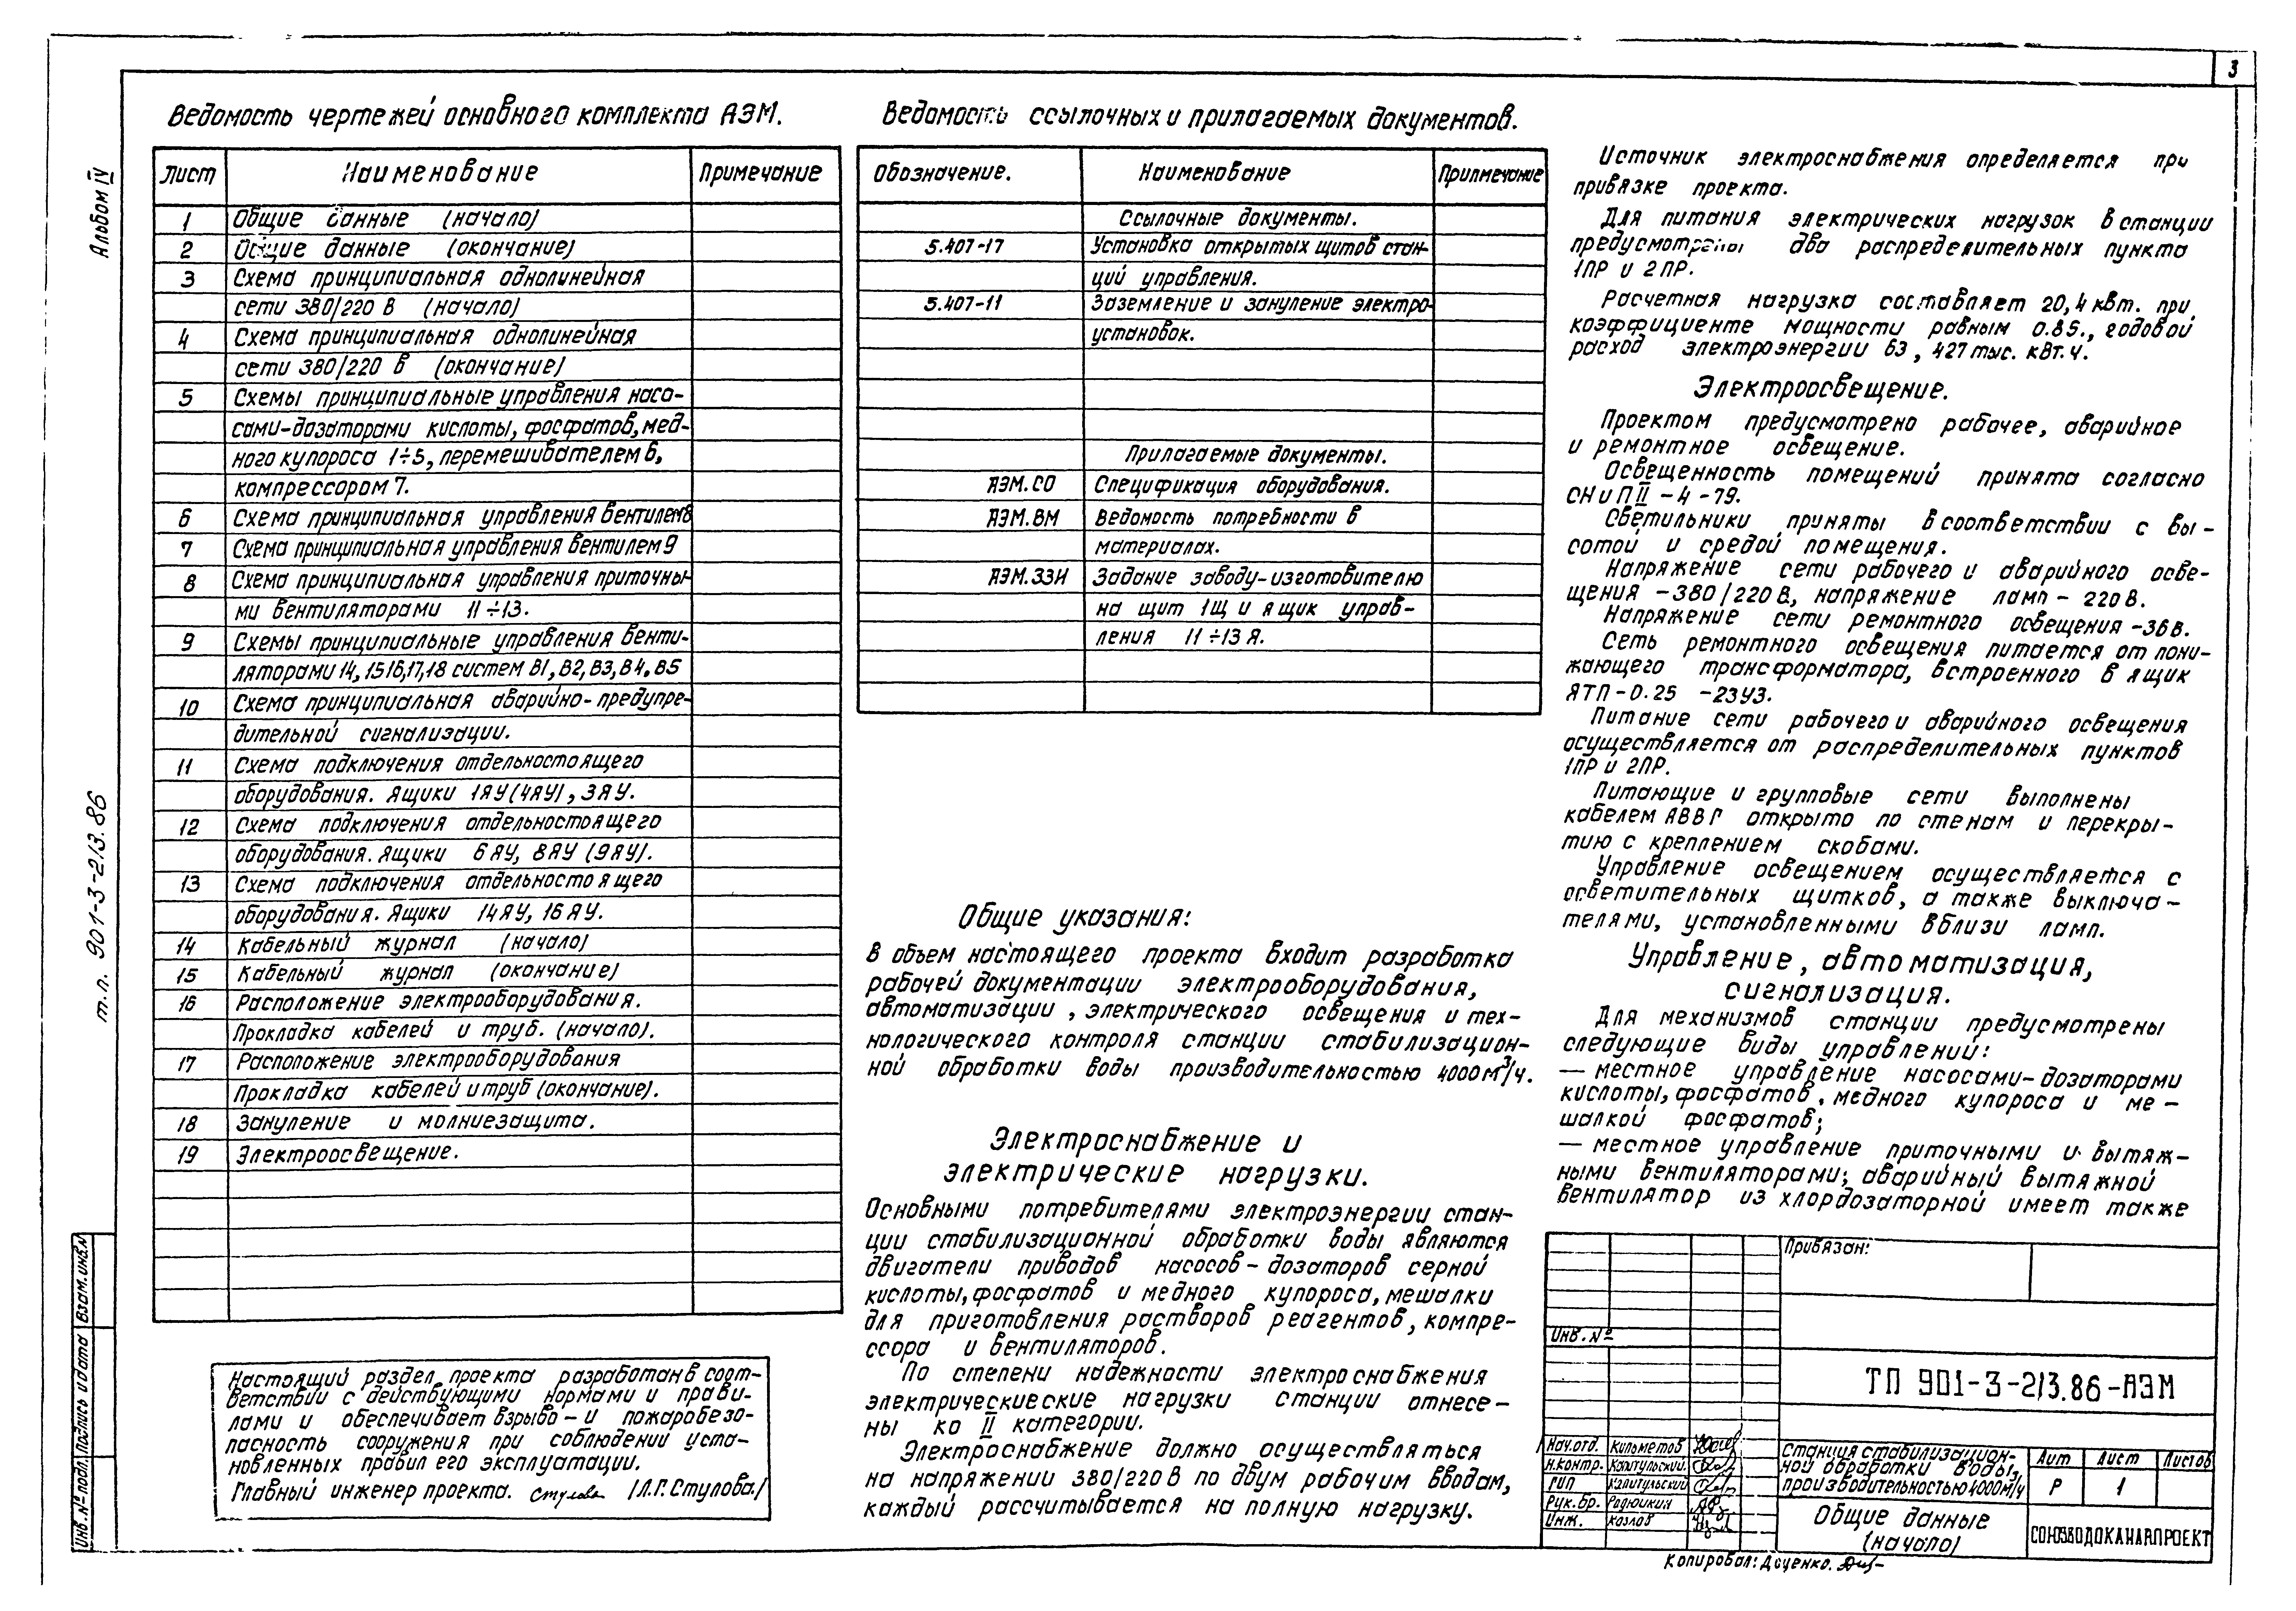 3
Альбом IV
т.п. 901-3-213.86
Ведомость чертежей основного комплекта АЭМ.
Лист Наименование Примечание
1 Общие данные (начало)
2 Общие данные (окончание)
3 Схема принципиальная однолинейная
сети 380/220 В (начало)
4 Схема принципиальная однолинейная
сети 380/220 В (окончание)
5 Схемы принципиальные управления насо-
сами-дозаторами кислоты, фосфатов, мед-
ного купороса 1÷5, перемешивателем 6,
компрессором 7.
6 Схема принципиальная управления вентилем 8
7 Схема принципиальная управления вентилем 9
8 Схема принципиальная управления приточны-
ми вентиляторами 11÷13.
9 Схемы принципиальные управления венти-
ляторами 14, 15 16, 17, 18 систем В1, В2, В3, В4, В5
10 Схема принципиальная аварийно-предупре-
дительной сигнализации.
11 Схема подключения отдельностоящего
оборудования. Ящики 1ЯУ(4ЯУ), 3ЯУ.
12 Схема подключения отдельностоящего
оборудования. Ящики 6ЯУ, 8ЯУ (9ЯУ).
13 Схема подключения отдельностоящего
оборудования. Ящики 14ЯУ, 16ЯУ.
14 Кабельный журнал (начало)
15 Кабельный журнал (окончание)
16 Расположение электрооборудования.
Прокладка кабелей и труб. (начало).
17 Расположение электрооборудования
Прокладка кабелей и труб (окончание).
18 Зануление и молниезащита.
19 Электроосвещение.
Настоящий раздел проекта разработан в соот-
ветствии с действующими нормами и прави-
лами и обеспечивает взрыво-и пожаробезо-
пасность сооружения при соблюдении уста-
новленных правил его эксплуатации.
Главный инженер проекта. /Л.Г. Стулова/
Взам. инв. №
Подпись и дата
Инв. № подл.
Ведомость ссылочных и прилагаемых документов.
Обозначение. Наименование Прилмечание
Ссылочные документы.
5.407-17 Установка открытых щитов стан-
ций управления.
5.407-11 Заземление и зануление электро-
установок.
Прилагаемые документы.
АЭМ.СО Спецификация оборудования.
АЭМ.ВМ Ведомость потребности в
материалах.
АЭМ.ЗЗИ Задание заводу-изготовителю
на щит 1Щ и ящик управ-
ления 11÷13 Я.
Общие указания:
В объем настоящего проекта входит разработка
рабочей документации электрооборудования,
автоматизации, электрического освещения и тех-
нологического контроля станции стабилизацион-
ной обработки воды производительностью 4000 м³/ч.
Электроснабжение и
электрические нагрузки.
Основными потребителями электроэнергии стан-
ции стабилизационной обработки воды являются
двигатели приводов насосов-дозаторов серной
кислоты, фосфатов и медного купороса, мешалки
для приготовления растворов реагентов, компре-
ссора и вентиляторов.
По степени надежности электроснабжения
электрическиеские нагрузки станции отнесе-
ны ко II категории.
Электроснабжение должно осуществляться
на напряжении 380/220 В по двум рабочим вводам,
каждый рассчитывается на полную нагрузку.
Источник электроснабжения определяется при
привязке проекта.
Для питания электрических нагрузок в станции
предусмотрены два распределительных пункта
1ПР и 2ПР.
Расчетная нагрузка составляет 20,4 квт. при
коэффициенте мощности равным 0.85., годовой
расход электроэнергии 63,427 тыс. кВт.ч.
Электроосвещение.
Проектом предусмотрено рабочее, аварийное
и ремонтное освещение.
Освещенность помещений принята согласно
СНиП II-4-79.
Светильники приняты в соответствии с вы-
сотой и средой помещения.
Напряжение сети рабочего и аварийного осве-
щения -380/220 В, напряжение ламп - 220 В.
Напряжение сети ремонтного освещения -36 В.
Сеть ремонтного освещения питается от пони-
жающего трансформатора, встроенного в ящик
ЯТП-0.25 -23У3.
Питание сети рабочего и аварийного освещения
осуществляется от распределительных пунктов
1ПР и 2ПР.
Питающие и групповые сети выполнены
кабелем АВВГ открыто по стенам и перекры-
тию с креплением скобами.
Управление освещением осуществляется с
осветительных щитков, а также выключа-
телями, установленными вблизи ламп.
Управление, автоматизация,
сигнализация.
Для механизмов станции предусмотрены
следующие виды управлений:
— местное управление насосами-дозаторами
кислоты, фосфатов, медного купороса и ме-
шалкой фосфатов;
— местное управление приточными и вытяж-
ными вентиляторами; аварийный вытяжной
вентилятор из хлордозаторной имеет также
Привязан:
Инв. №
ТП 901-3-213.86-АЭМ
Нач.отд. Кильметов
Н.контр. Капитульский
ГИП Капитульский
Рук.бр. Радюикин
Инж. Козлов
Станция стабилизацион-
ной обработки воды,
производительностью 4000 м/ч
Лит Лист Листов
Р 1
Общие данные
(начало)
СОЮЗВОДОКАНАЛПРОЕКТ
Копировал: Даценко.